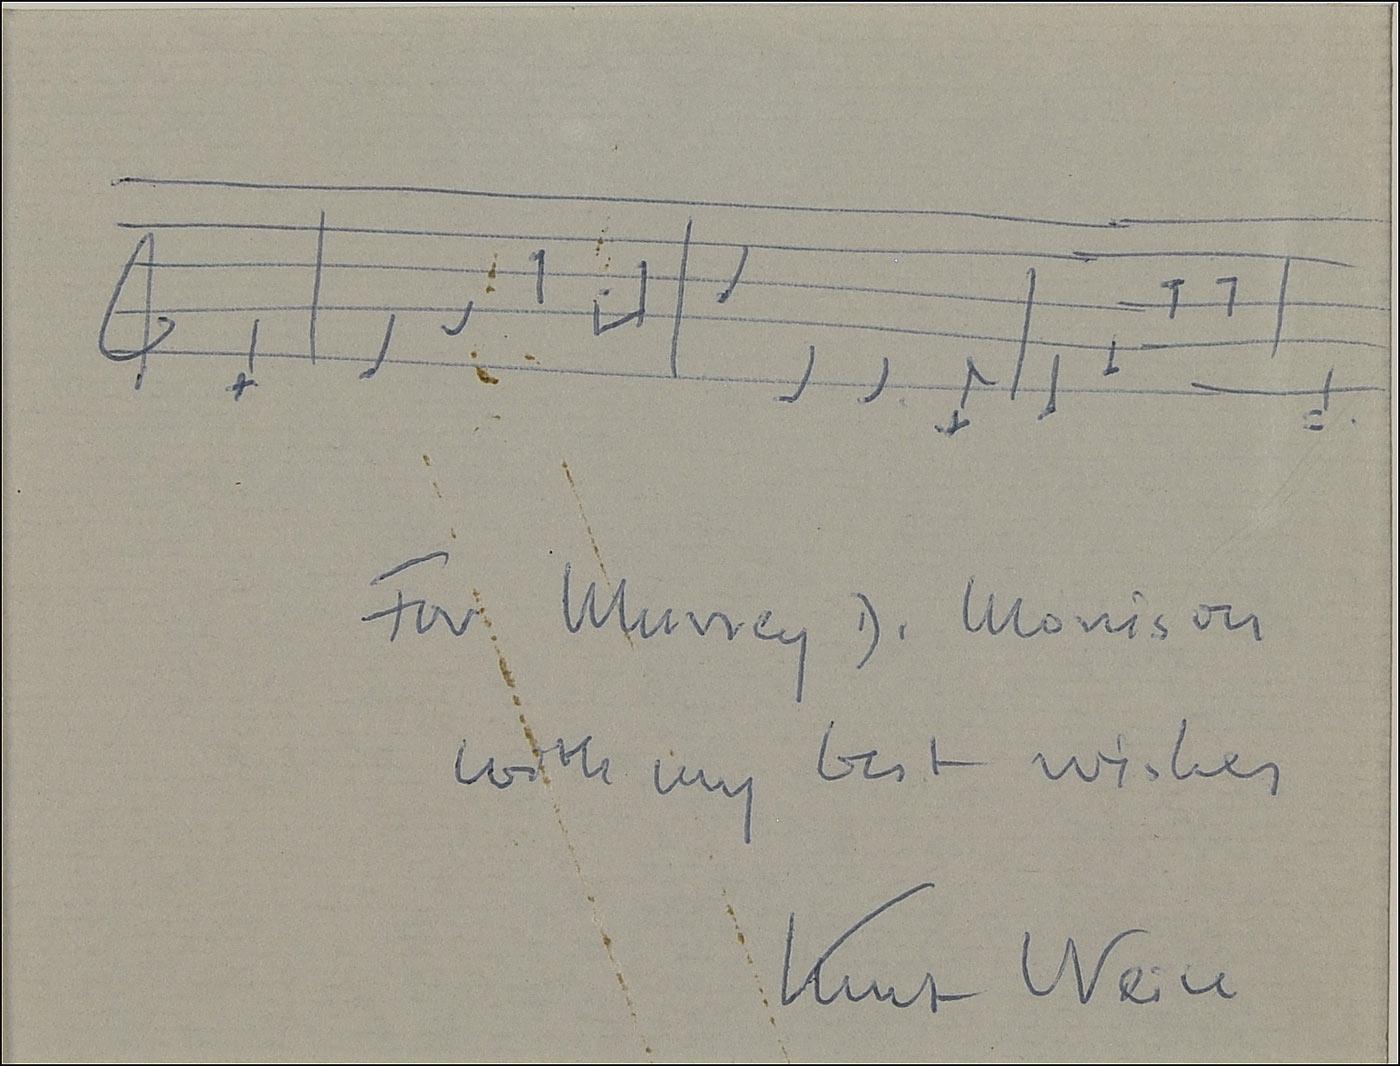 For Murrey D. Morrison
with my best wishes
Kurt Weill